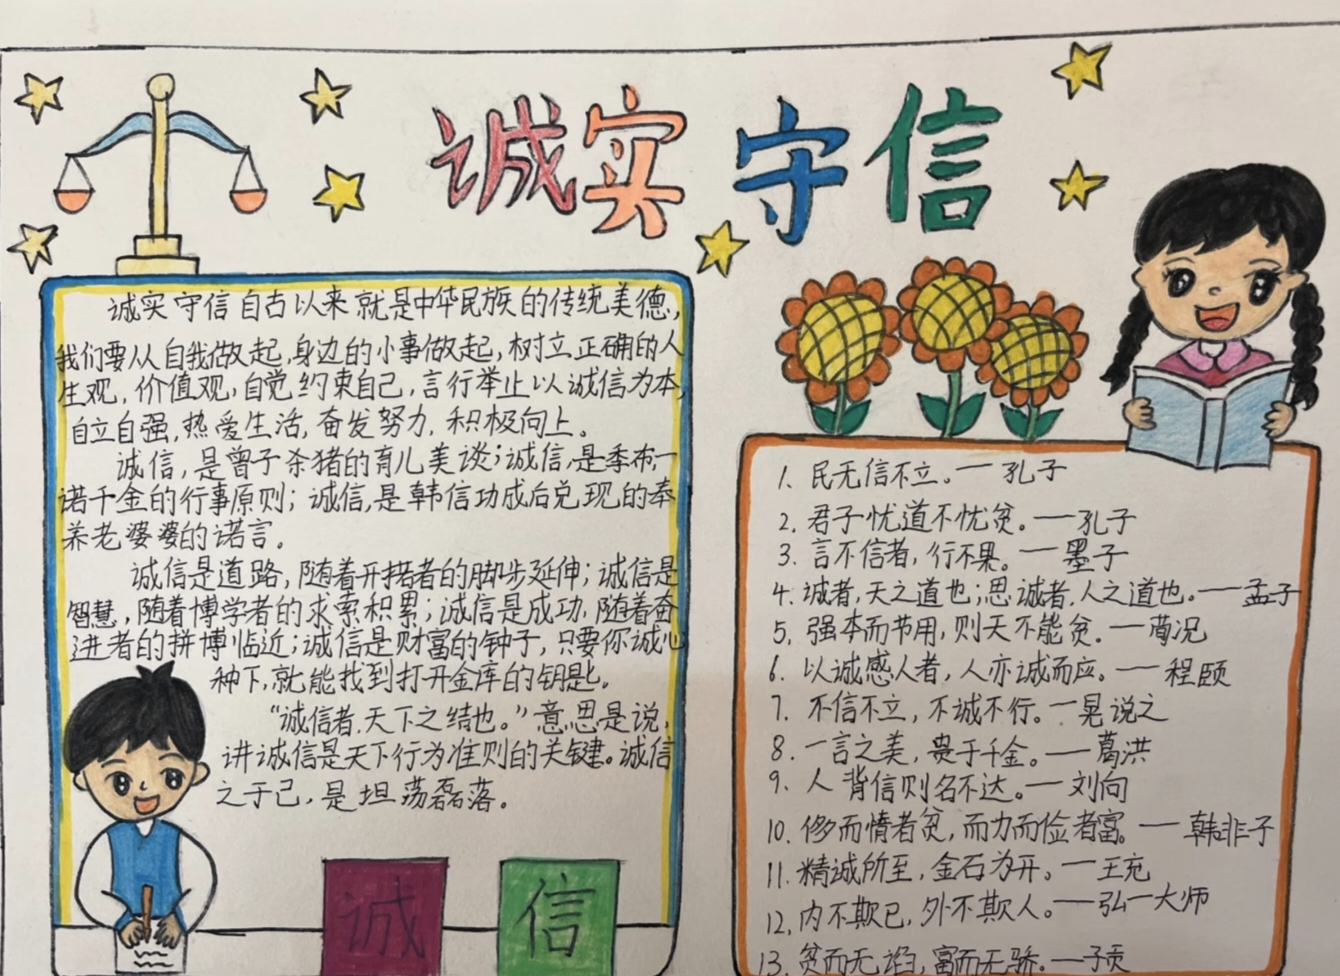 诚实守信
诚实守信自古以来就是中华民族的传统美德,
我们要从自我做起,身边的小事做起,树立正确的人
生观,价值观,自觉约束自己,言行举止以诚信为本,
自立自强,热爱生活,奋发努力,积极向上。
诚信,是曾子杀猪的育儿美谈;诚信,是季布一
诺千金的行事原则;诚信,是韩信功成后兑现的奉
养老婆婆的诺言。
诚信是道路,随着开拓者的脚步延伸;诚信是
智慧,随着博学者的求索积累;诚信是成功,随着奋
进者的拼博临近;诚信是财富的钟子,只要你诚心
种下,就能找到打开金库的钥匙。
“诚信者,天下之结也。”意思是说,
讲诚信是天下行为准则的关键。诚信
之于己,是坦荡磊落。
诚 信
1. 民无信不立。——孔子
2. 君子忧道不忧贫。——孔子
3. 言不信者,行不果。——墨子
4. 诚者,天之道也;思诚者,人之道也。——孟子
5. 强本而节用,则天不能贫。——荀况
6. 以诚感人者,人亦诚而应。——程颐
7. 不信不立,不诚不行。——晃说之
8. 一言之美,贵于千金。——葛洪
9. 人背信则名不达。——刘向
10. 侈而惰者贫,而力而俭者富。——韩非子
11. 精诚所至,金石为开。——王充
12. 内不欺已,外不欺人。——弘一大师
13. 贫而无谄,富而无骄。——子贡